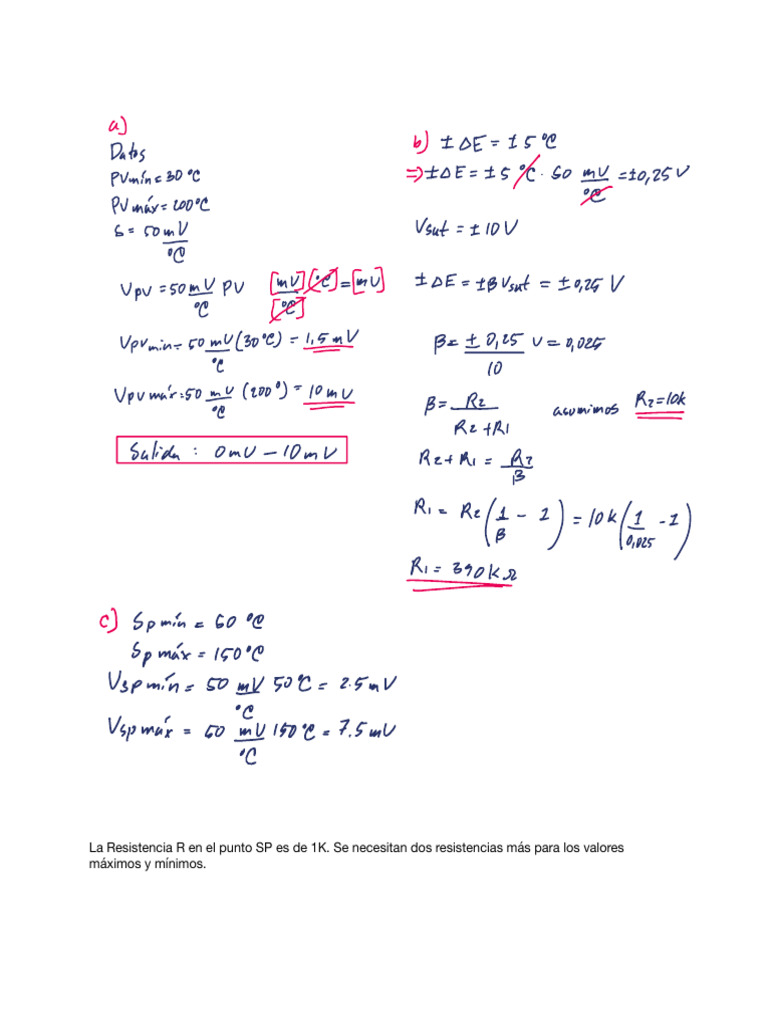 a)
Datos
PVmín = 30 °C
PVmáx = 200°C
S = 50 mV/°C
Vpv = 50 mV/°C PV [mV][°C]/[°C] = [mV]
Vpvmin = 50 mV/°C (30°C) = 1,5 mV
Vpvmáx = 50 mV/°C (200°) = 10 mV
Salida : 0mV – 10mV
b) ± ΔE = ± 5 °C
⇒ ± ΔE = ± 5 °C · 50 mV/°C = ±0,25 V
Vsat = ± 10 V
± ΔE = ±β Vsat = ± 0,25 V
β = ± 0,25/10 V = 0,025
β = R2/(R2+R1) asumimos R2=10k
R2+R1 = R2/β
R1 = R2 (1/β - 1) = 10k (1/0,025 - 1)
R1 = 390kΩ
c) Sp mín = 50 °C
Sp máx = 150°C
Vsp mín = 50 mV/°C 50°C = 2.5 mV
Vsp máx = 50 mV/°C 150°C = 7.5 mV
La Resistencia R en el punto SP es de 1K. Se necesitan dos resistencias más para los valores
máximos y mínimos.